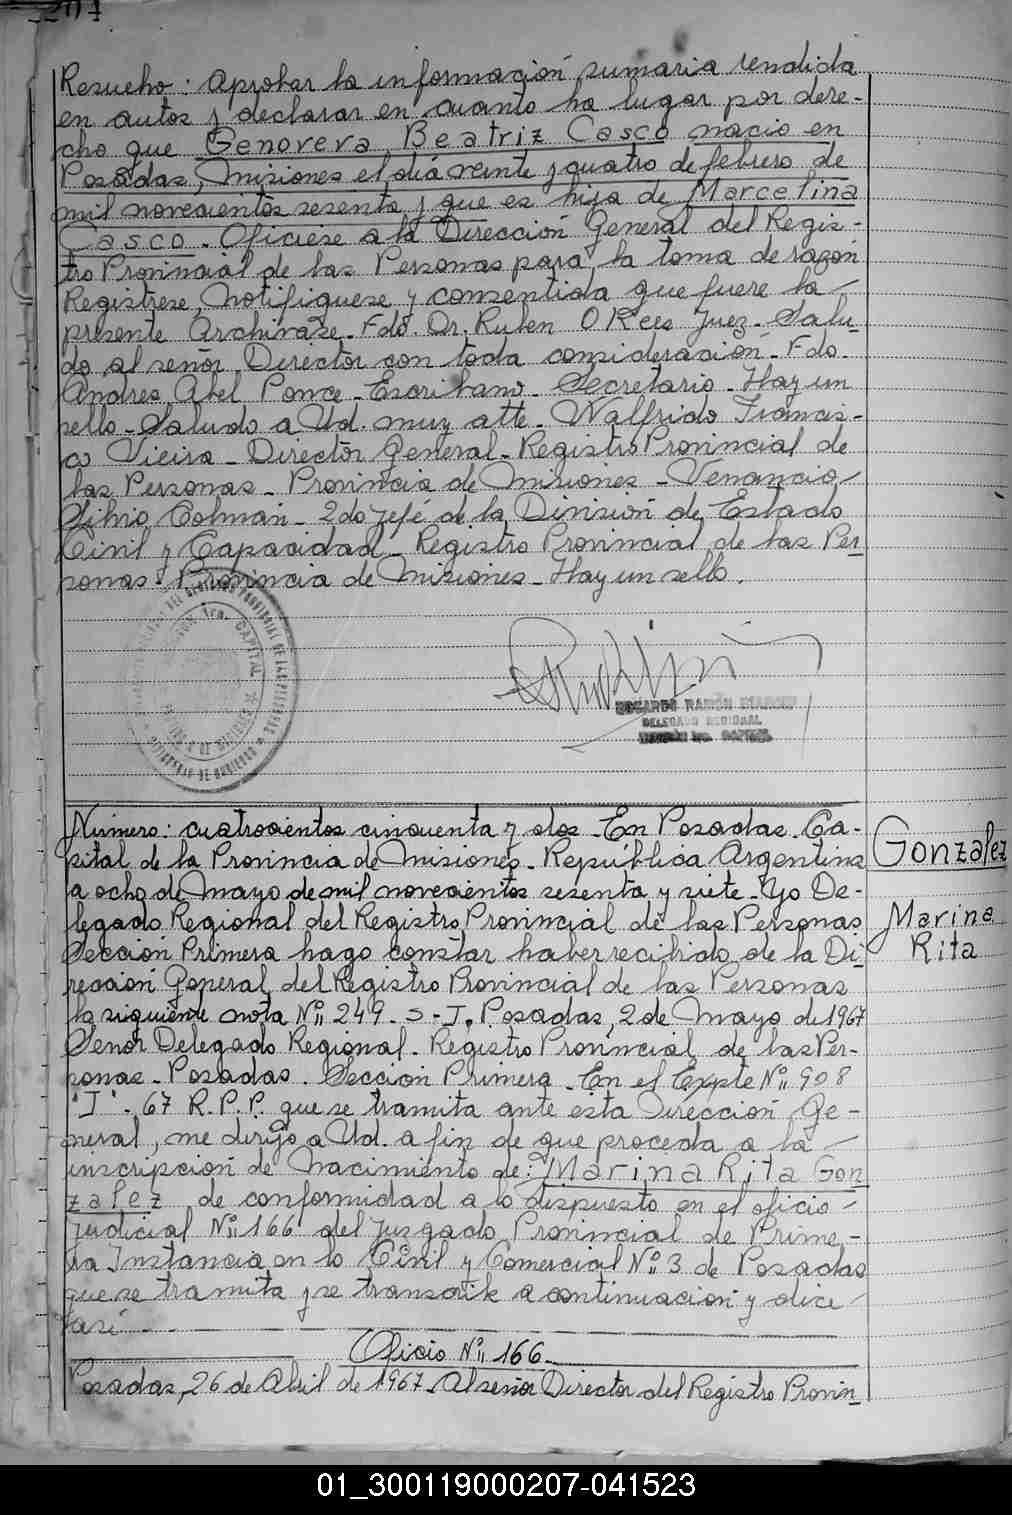 207
Resuelvo: Aprobar la informacion sumaria rendida
en autos y declarar en cuanto ha lugar por dere-
cho que Genoveva Beatriz Casco nacio en
Posadas, Misiones el día veinte y quatro de febrero de
mil novecientos sesenta y que es hija de Marcelina
Casco. Oficiese a la Dirección General del Regis-
tro Provincial de las Personas para la toma de razón
Registrese, Notifiquese y consentida que fuere la
presente Archivase. Fdo. Dr. Ruben O Rees Juez. Salu-
do al señor Director con toda consideración. Fdo.
Andres Abel Ponce - Escribano - Secretario - Hay un
sello - Saludo a Ud. muy atte. Walfrido Francis-
co Vieira - Director General - Registro Provincial de
las Personas - Provincia de Misiones - Venancio
Silvio Colman - 2do Jefe de la División de Estado
Civil y Capacidad - Registro Provincial de las Per-
sonas - Provincia de Misiones - Hay un sello.
DELEGADO REGIONAL
Número: cuatrocientos cincuenta y dos - En Posadas - Ca-
pital de la Provincia de Misiones - República Argentina
a ocho de Mayo de mil novecientos sesenta y siete - Yo De-
legado Regional del Registro Provincial de las Personas
Sección Primera hago constar haber recibido de la Di-
rección General del Registro Provincial de las Personas
la siguiente nota Nº 249 - S - J. Posadas, 2 de Mayo de 1967
Señor Delegado Regional - Registro Provincial de las Per-
sonas - Posadas. Sección Primera - En el Expte Nº 908
"J" - 67 R.P.P. que se tramita ante esta Dirección Ge-
neral, me dirijo a Ud. a fin de que proceda a la
inscripción de Nacimiento de: Marina Rita Gon
zalez de conformidad a lo dispuesto en el oficio
Judicial Nº 166 del Juzgado Provincial de Prime-
ra Instancia en lo Civil y Comercial Nº 3 de Posadas
que se tramita y se transcribe a continuacion y dice
asi
Oficio Nº 166.
Posadas, 26 de Abril de 1967. Al señor Director del Registro Provin
Gonzalez
Marina
Rita
01_300119000207-041523